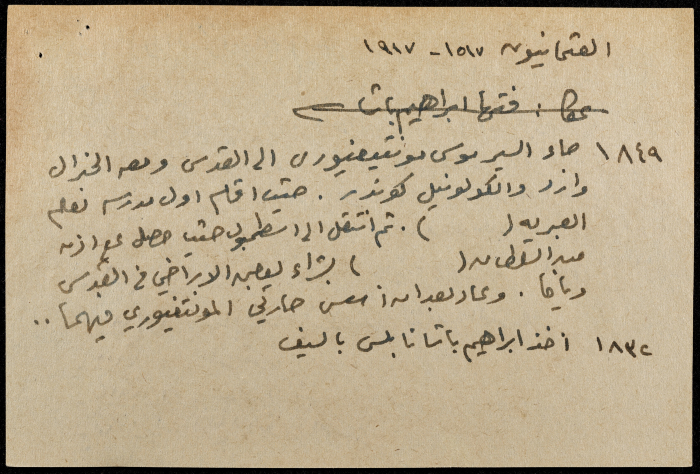 العثمانيون ١٥١٧ - ١٩١٧
عكا : فتحها ابراهيم باشا
١٨٤٩ جاء السير موسى مونتيفيوري الى القدس ومعه الجنرال
وارد والكولونيل كوندر . حيث اقام اول مدرسه تعلم
العبريه ( ) . ثم انتقل الى اسطمبول حيث حصل على اذن
من السلطان ( ) بشراء بعض الاراضي في القدس
ويافا . وعاد بعد ان اسس حارتي المونتفيوري فيهما ..
١٨٣٢ أخذ ابراهيم باشا نابلس بالسيف